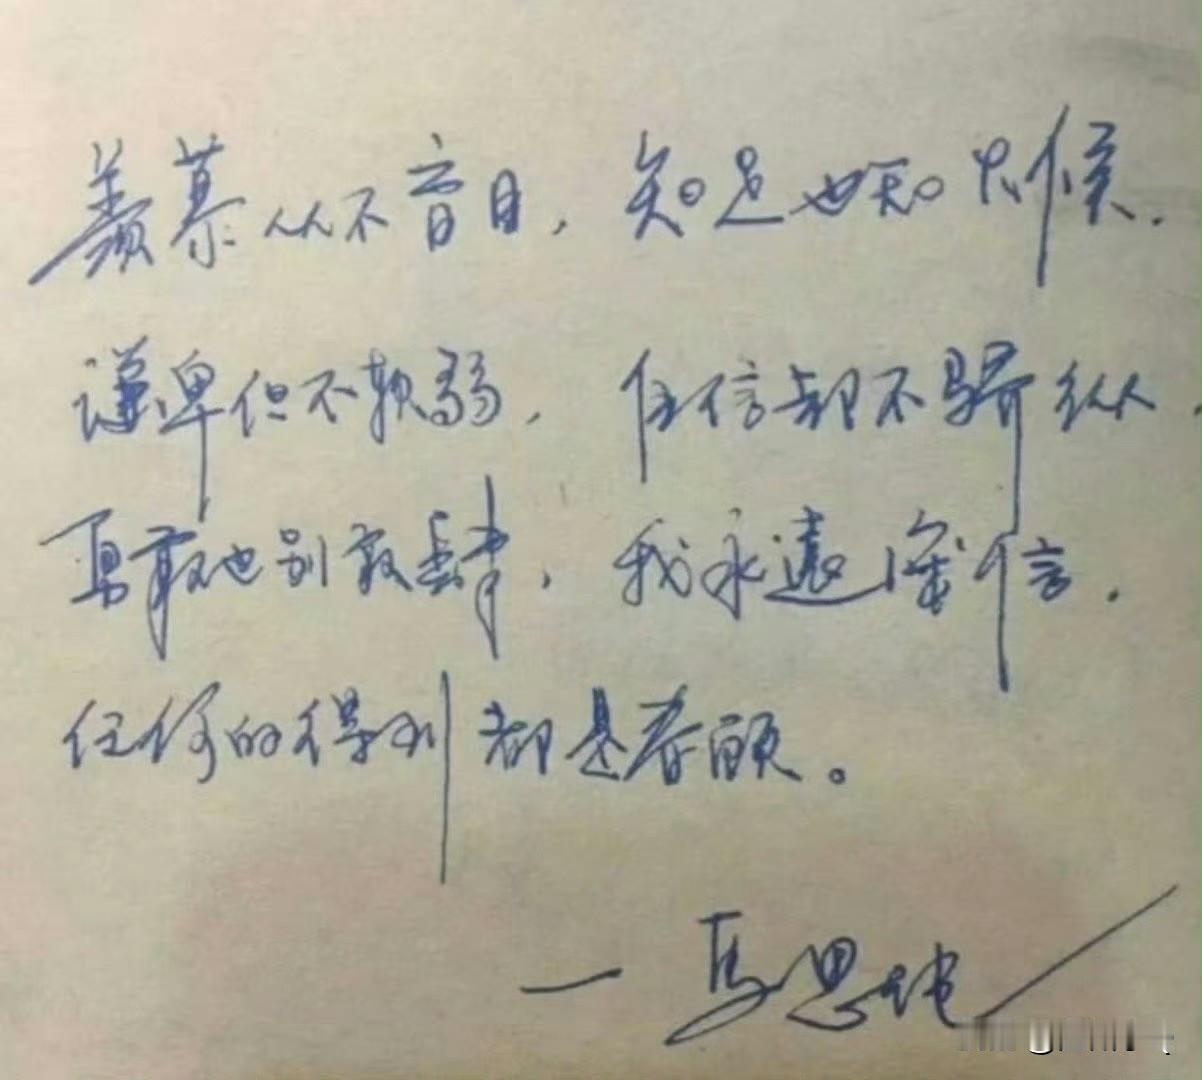 羡慕从不盲目，知足也知火候.
谦卑但不软弱，自信却不骄纵，
勇敢也别放肆，我永远深信.
任何的得到都是眷顾。
一马思纯